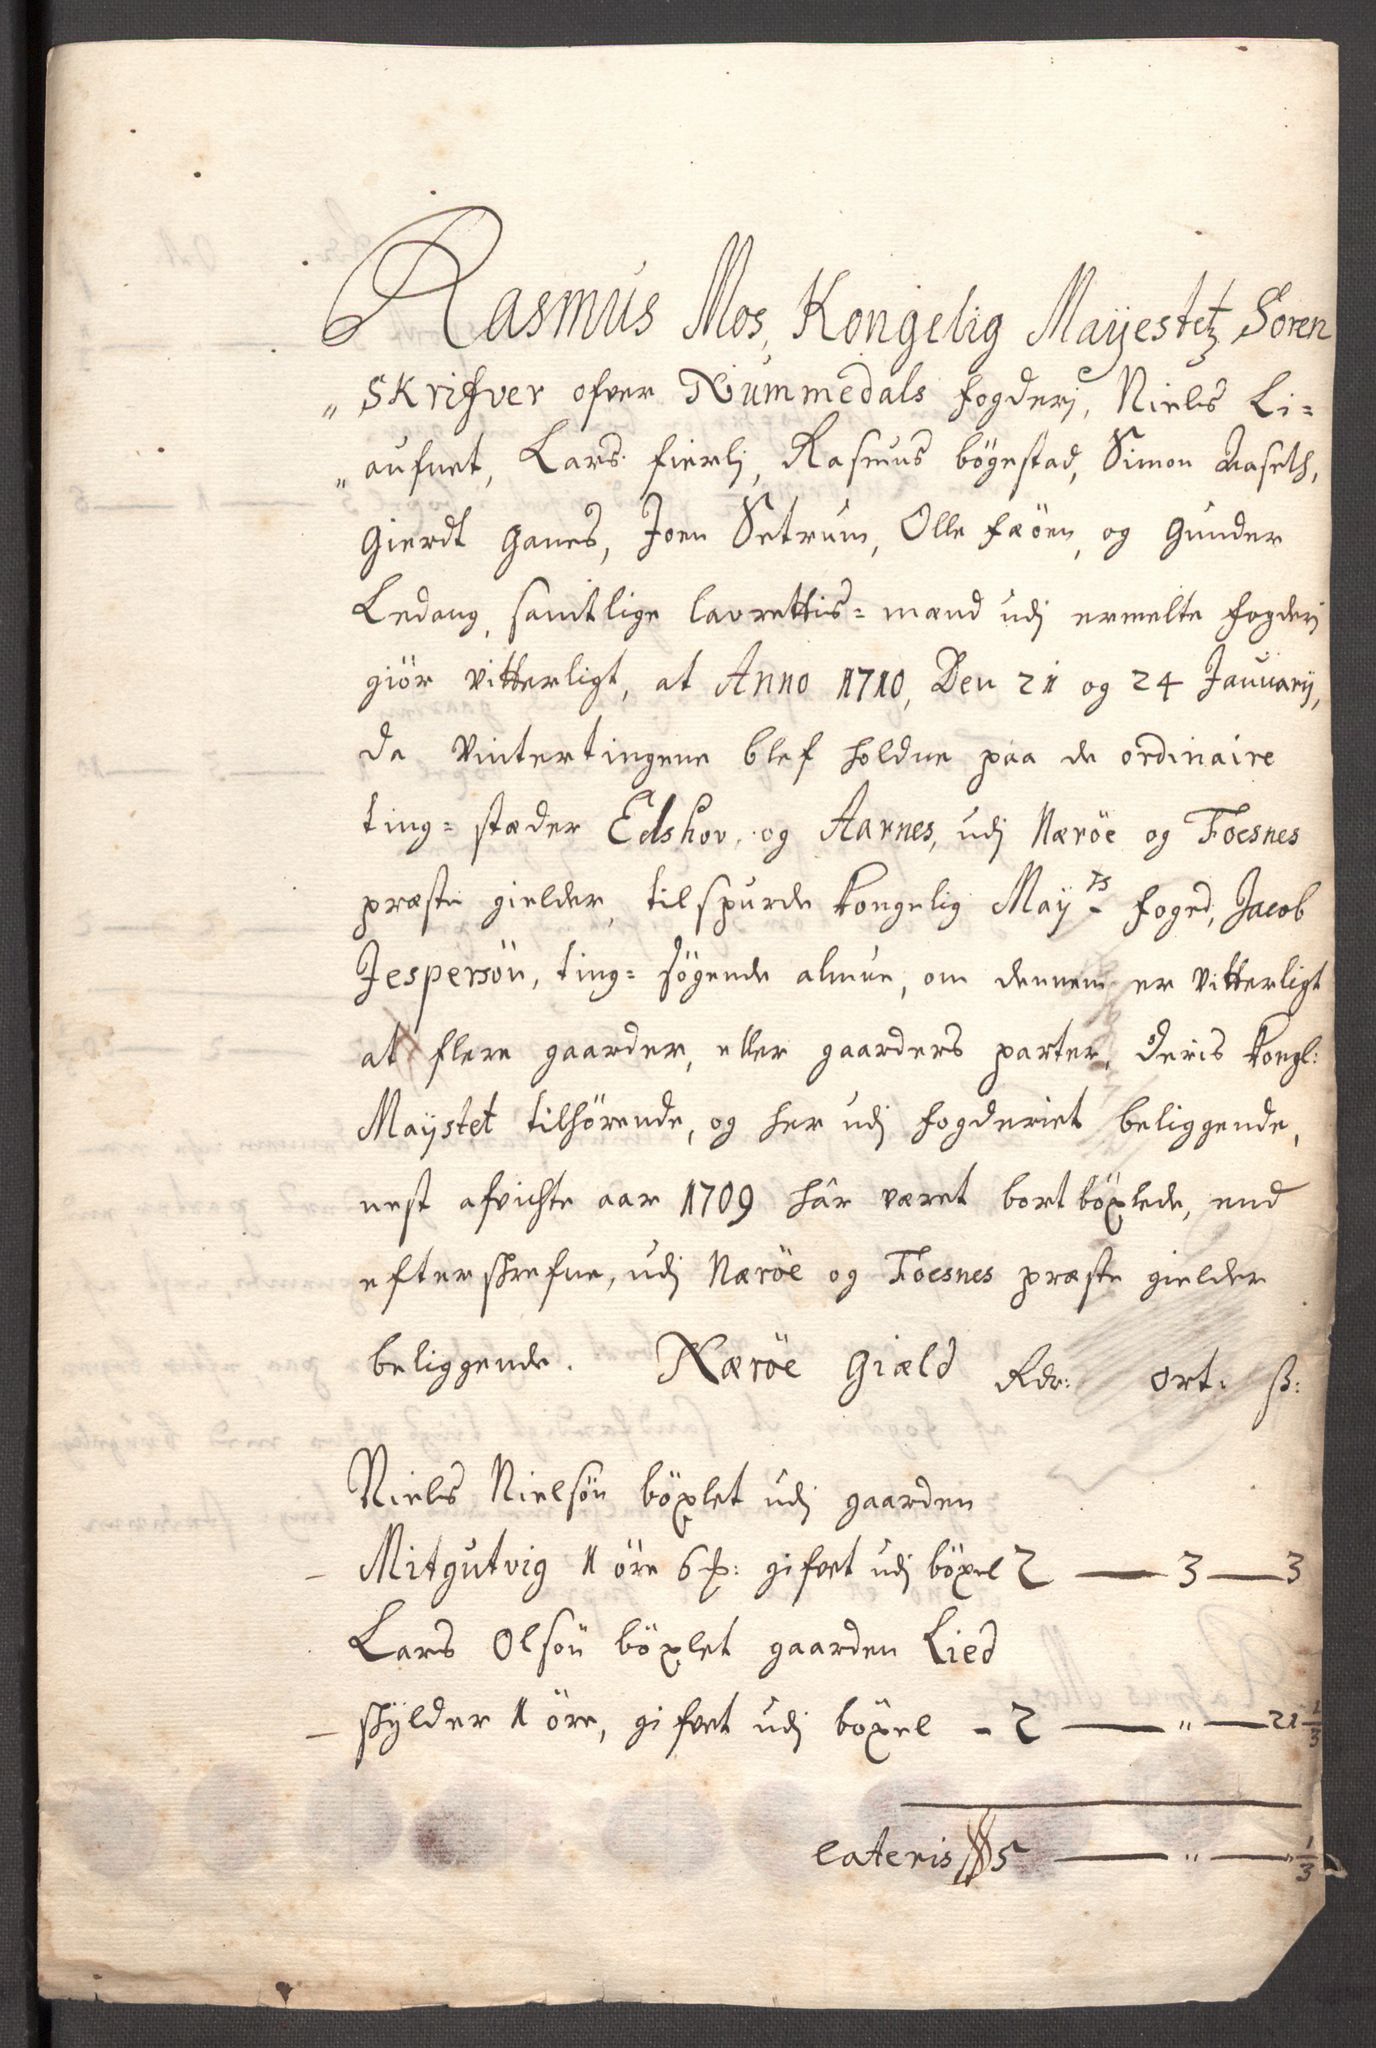 Rasmus Mos, Kongelig Mayestetz Soren
„ skrifver ofver Nummedals fogderj, Niels Li=
„ aufnet, Lars fierlj, Rasmus bögestad, Simon Aaseth,
Gierdt Ganes, Joen Setrum, Olle Fæöen, og Gunder
Ledang, samtlige lavrettis= mænd udj ermelte fogderj
giör vitterligt, at Anno 1710, Den 21 og 24 Januarij,
da vintertingene blef holdne paa de ordinaire
ting= stæder Edshov og Aarnes, udj Næröe og Foesnes
præste gielder, tilspurde kongelig Mayts foged, Jacob
Jespersön, ting= søgende almue, om dennem er vitterligt
at flere gaarder, eller gaarders parter, Deris kongl:
Maystet tilhörende, og her udj fogderiet beliggende,
nest afvichte aar 1709 hâr været bortböxlede, end
efterskrefne, udj Næröe og Foesnes præste gielder
beliggende. Næröe Giæld Rdr: ort: ß:
Niels Nielsön böxlet udj gaarden
– Mitgutvig 1 öre 6 ℔: gifvet udj böxel 2 — 3 — 3
Lars Olsön böxlet gaarden Lied
– skylder 1 öre, gifvet udj böxel - 2 — „ — 21 1/3
Lateris 5 — „ — „ 1/3